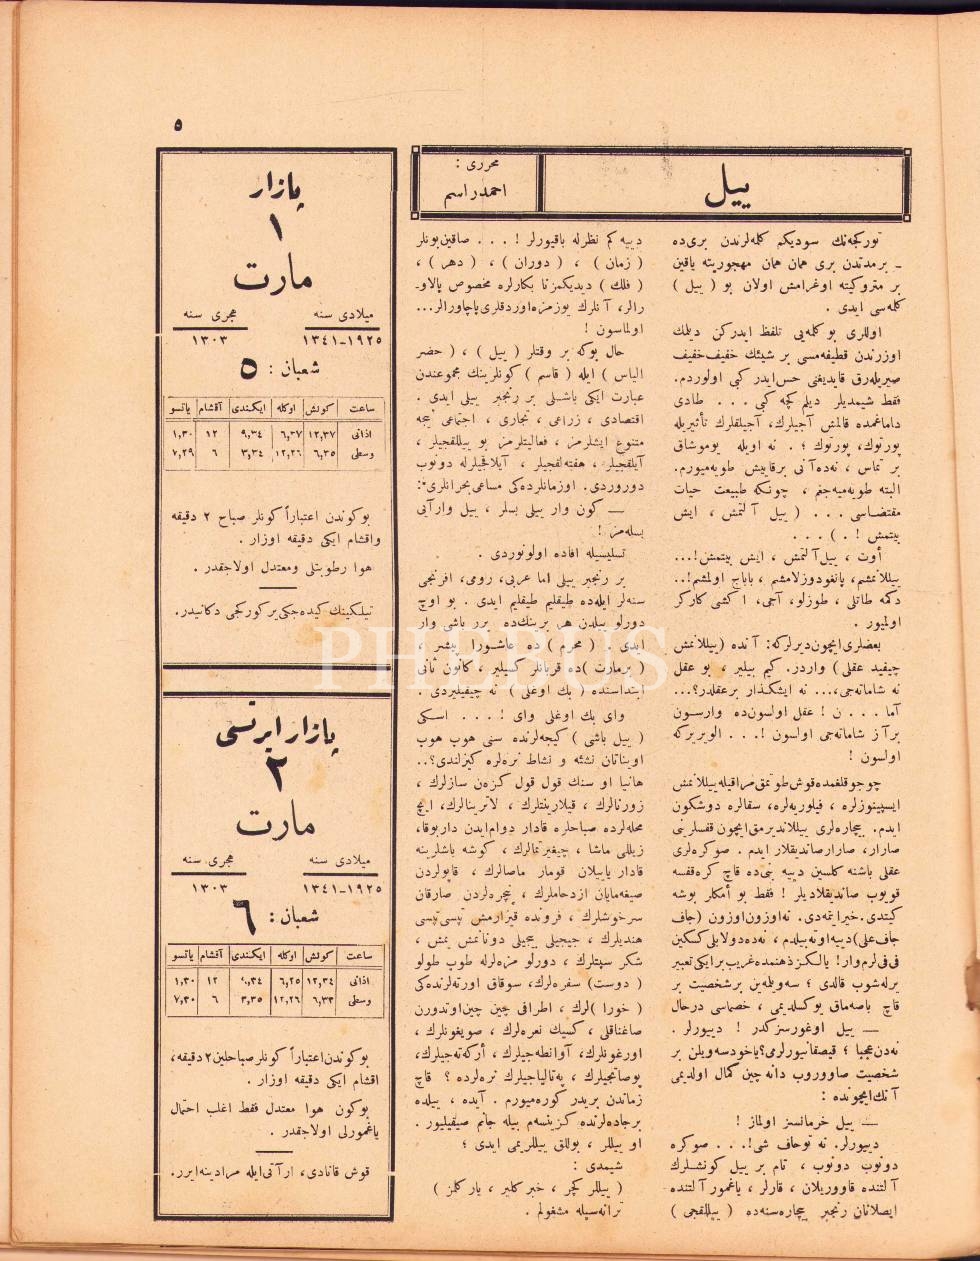 ٥
ييل
محررى :
احمد راسم
توركجه‌نك سوديكم كله‌لرندن برى‌ده
ـ برمدتدن برى همان همان مهجوريته ياقين
بر متروكيته اوغرامش اولان بو ( ييل )
كله‌سى ايدى .
اوللرى بو كله‌يى تلفظ ايدركن ديلمك
اوزرندن قطيفه‌مسى بر شيئك خفيف خفيف
صيريله‌رق قايديغنى حس ايدر كبى اولوردم.
فقط شيمديلر ديلم كچه كبى . . . طادى
داماغمده قالمش آجيلرك، آجيلقلرك تأثيريله
پورتوك، پورتوك ؛ . نه اويله يوموشاق
بر تماس ، نه‌ده آنى برقاييش طويه‌ميورم.
البته طويه‌ميه‌جغم ، چونكه طبيعت حيات
مقتضاسى . . . ( ييل آلتمش ، ايش
بيتمش ! . ) . . .
أوت ، ييل آلتمش ، ايش بيتمش!...
ييللانمشم، پانغودوزلامشم ، باباج اولمشم!..
دكمه طاتلى ، طوزلو، آجى، اكشى كاركر
اولميور .
بعضلرى ايچون ديرلركه: آنده (ييللانمش
چيفيد عقلى) واردر. كيم بيلير ، بو عقل
نه شاماته‌جى،... نه ايشكذار بر عقلدر؟...
آما . . . ن ! عقل اولسون‌ده وارسون
برآز شاماته‌جى اولسون !. . . الويرركه
اولسون !
چوجوقلغمده قوش طوتمق مراقيله ييللانمش
ايسپينوزلره ، فيلوريه‌لره، سقالره دوشكون
ايدم. بيچاره‌لرى ييللانديرمق ايچون قفسلرينى
صارار، صارار صانديقلار ايدم . صوكره‌لرى
عقلى باشنه كلسين دييه بنى‌ده قاچ كره قفسه
قويوب صانديقلاديلر ! فقط بو أمكلر بوشه
كيتدى. خيرايتمه‌دى. نه اوزون اوزون (جاف
جاف على) دييه اوته‌بيلدم ، نه‌ده دولابلى كسكين
فى‌فى‌لرم وار! يالكز ذهنمده غريب برايكى تعبير
برله‌شوب قالدى ؛ سه‌ويله‌ين برشخصيت بر
قاچ باصه‌ماق يوكسلديمى ، خصماسى درحال
— ييل اوغورسزكدر ! دييورلر .
نه‌دن عجبا ؛ قيصقانيورلرى؟ ياخود سه‌ويلن بر
شخصيت صاووروب دانه چين كمال اولديمى
آنك ايچونده :
— ييل خرمانسز اولماز !
دييورلر. نه توحاف شى!. . . صوكره
دونوب دونوب ، تام بر ييل كونشلرك
آلتنده قاووريلان ، قارلر ، ياغمور آلتنده
ايصلانان رنجبر بيچاره‌سنه‌ده ( ييللقجى )
دييه كم نظرله باقيورلر ! . . . صاقين بونلر
( زمان ) ، ( دوران ) ، ( دهر ) ،
( فلك ) ديديكمز تا بكارلره مخصوص پالاو-
رالر، آنلرك يوزمزه اوردقلرى پاچاورالر...
اولماسون !
حال بوكه بر وقتلر ( ييل ) ، ( حضر
الياس ) ايله ( قاسم ) كونلرينك مجموعندن
عبارت ايكى باشلى بر رنجبر ييلى ايدى .
اقتصادى ، زراعى ، تجارى ، اجتماعى نيجه
متنوع ايشلرمز ، فعاليتلرمز بو ييللقجيلر ،
آيلقجيلر ، هفته‌لقجيلر ، آيلاقجيلرله دونوب
دوروردى. اوزمانلرده‌كى مساعى بحرانلرى:
— كون وار ييلى بسلر ، ييل وار آيى
بسله‌مز !
تسليسيله افاده اولونوردى .
بر رنجبر ييلى اما عربى، رومى، افرنجى
سنه‌لر ايله‌ده طيقليم طيقليم ايدى . بو اوچ
دورلو ييلدن هر برينك‌ده برر باشى وار
ايدى . ( محرم ) ده عاشورا پيشير ،
( برمارت ) ده قربانلر كسيلير ، كانون ثانى
ابتداسنده ( بك اوغلى ) نه چيقيليردى .
واى بك اوغلى واى ! . . . اسكى
( ييل باشى ) كيجه‌لرنده سنى هوب هوب
اويناتان نشئه و نشاط نره‌لره كيزلندى؟..
هانيا او سنك قول قول كزه‌ن سازلرك ،
زورنالرك ، قيلارينتلرك ، لاترينالرك، ايچ
محله‌لرده صباحلره قادار دوام ايدن داربوقا،
زيللى ماشا ، چيغيرتمالرك ، كوشه باشلرينه
قادار ياييلان قومار ماصالرك ، قاپولردن
صيغه‌مايان ازدحاملرك ، پنچره‌لردن صارقان
سرخوشلرك ، فرونده قيزارمش تپسى تپسى
هنديلرك ، جيجيلى بيجيلى دونانمش يمش ،
شكر سپتلرك ، دورلو مزه‌لرله طوب طولو
( دوست ) سفره‌لرك، سوقاق اورته‌لرنده‌كى
( خورا ) لرك ، اطرافى چين چين اوتدورن
صاغناقلى ، كسيك نعره‌لرك ، صويغونلرك ،
اورغونلرك، آوانطه‌جيلرك ، أركه‌ته‌جيلرك،
پوصاتجيلرك ، په‌تالياجيلرك نره‌لرده ؟ قاچ
زماندن بريدر كوره‌ميورم. آيده ، ييلده
برجاده‌لرنده كزينسه‌م بيله جانم صيقيليور .
او ييللر ، بوللق ييللريمى ايدى ؛
شيمدى :
( ييللر كچر ، خبر كلير ، يار كلمز )
ترانه‌سيله مشغولم .
پازار
١
مارت
ميلادى سنه
١٩٢٥-١٣٤١
هجرى سنه
١٣٠٣
شعبان : ٥
ساعت كونش اوكله ايكندى آقشام ياتسو
اذانى ١٢,٣٧ ٦,٢٧ ٩,٣٤ ١٢ ١,٣٠
وسطى ٦,٣٥ ١٢,٢٦ ٣,٣٤ ٦ ٧,٢٩
بوكوندن اعتباراً كونلر صباح ٢ دقيقه
واقشام ايكى دقيقه اوزار .
هوا رطوبتلى ومعتدل اولاجقدر .
تيلكينك كيده‌جكى ير كوركجى دكانيدر.
پازار ايرتسى
٢
مارت
ميلادى سنه
١٩٢٥-١٣٤١
هجرى سنه
١٣٠٣
شعبان: ٦
ساعت كونش اوكله ايكندى آقشام ياتسو
اذانى ١٢,٣٤ ٦,٢٥ ٩,٣٤ ١٢ ١,٣٠
وسطى ٦,٣٣ ١٢,٢٦ ٣,٣٥ ٦ ٧,٣٠
بوكوندن اعتباراً كونلر صباحلين ٢ دقيقه،
اقشام ايكى دقيقه اوزار .
بوكون هوا معتدل فقط اغلب احتمال
ياغمورلى اولاجقدر .
قوش قانادى، ار آتى ايله مرادينه ايرر.
PHEBUS